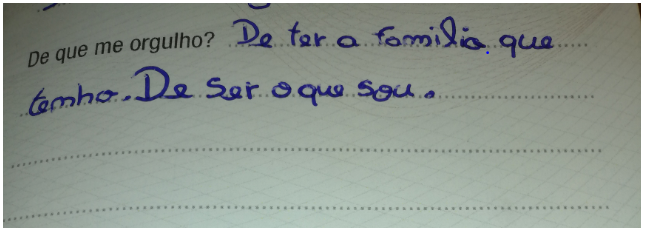 De que me orgulho? De ter a familia que
tenho. De ser o que sou.